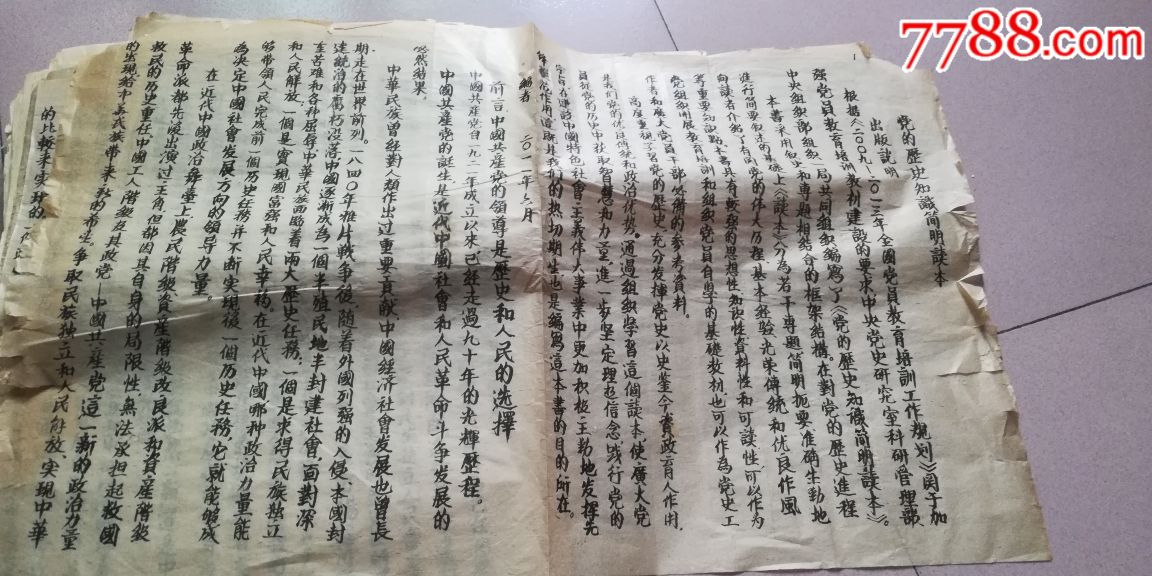 7788.com
党的歷史知識简明讀本
出版説明
根据《二00九-二0一三年全國党員教育培訓工作規划》関于加
强党員教育培訓教材建設的要求中央党史研究室科研管理部
中央組織部組織一局共同組織編寫了《党的歷史知識简明讀本》。
本書采用叙史和專題相结合的框架結構。在對党的歷史進程
進行简要叙述的基礎上《讀本》分為若干專題簡明扼要准确生動地
向讀者介紹了有関党的伟大历程基本經验光荣傳統和优良作風
等重要知識點本書具有較强的思想性知識性資料性和可讀性可以作為
党組織開展教育培訓和組織党員自學的基礎教材也可以作為党史工
作者和廣大党員干部学習的参考資料。
高度重視学習党的歷史充分发揮党史以史鉴今資政育人作用,
是我们党的优良傳統和政治优势。通過組織學習這個讀本,使廣大党
員從党的历史中获取智慧和力量,進一步坚定理想信念践行党的
在建設中國特色社會主義伟大事業中更加积极主動地发揮先
作用這既是我们的热切期望也是編寫這本書的目的所在。
編者 二0一一年六月
前言:中國共産党的領導是歷史和人民的选擇
中國共産党自一九二一年成立以来已經走過九十年的光輝歷程。
中國共産党的誕生是近代中國社會和人民革命斗争发展的
必然結果。
中華民族曾經對人類作出过重要貢献,中國經济社會发展也曾長
期走在世界前列。一八四0年鴉片戰争後,随着外國列强的入侵本國封
建統治的腐朽没落中國逐漸成為一個半殖民地半封建社會,面對深
重苦难和各种屈辱中華民族面臨着兩大歷史任務,一個是求得民族独立
和人民解放,一個是實現國家富强和人民幸福。在近代中國哪种政治力量能
够带領人民完成前一個历史任務并不断実現後一個历史任務,它就能够成
為决定中國社會发展方向的領导力量。
在近代中國政治舞臺上農民階級資産階級改良派和資産階級
革命派都先後出演过主角但都因其自身的局限性,無法承担起救國
救民的历史重任中國工人階級及其政党—中國共産党這一新的政治力量
的出現給中華民族带来新的希生,争取民族独立和人民解放,实現中華